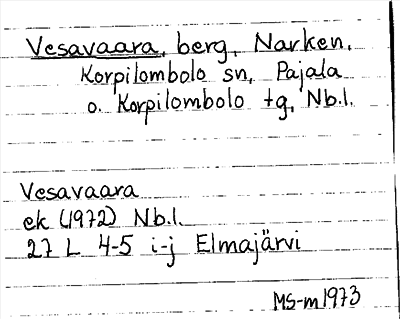 Vesavaara, berg, Narken,
Korpilombolo sn, Pajala
o. Korpilombolo tg, Nb.l.
Vesavaara
ek (1972) Nb.l.
27 L 4-5 i-j Elmajärvi
MS-m 1973